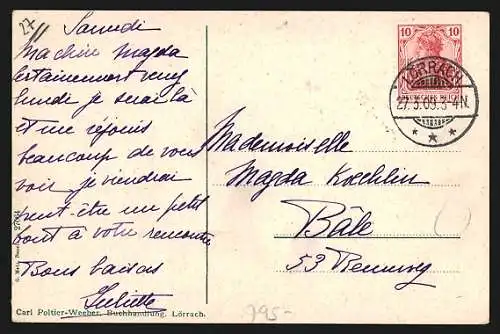 27
Samedi
Ma chère Magda
Certainement
lundi je serai là
et me réjouis
beaucoup de vous
voir je viendrai
peut-être un petit
bout à votre rencontre
Bons baisers
Juliette
Carl Poltier-Weeber, Buchhandlung, Lörrach.
10 10
LÖRRACH
27.3.09.3-4N.
Mademoiselle
Magda Koechlin
Bâle
53 Rennweg
795-